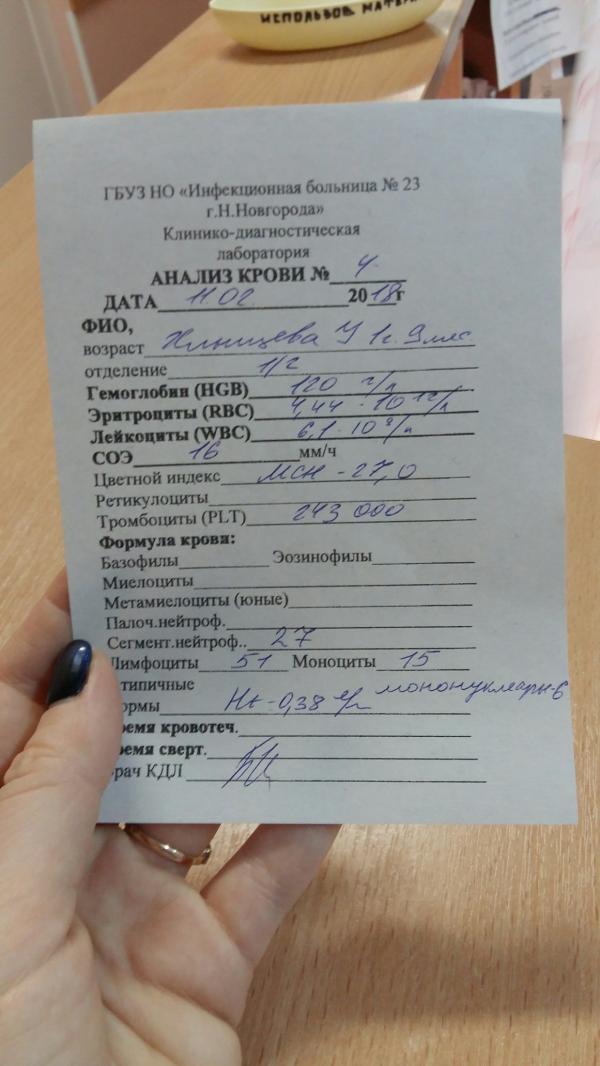 ИСПОЛЬЗОВ. МАТЕР
ГБУЗ НО «Инфекционная больница № 23
г.Н.Новгорода»
Клинико-диагностическая
лаборатория
АНАЛИЗ КРОВИ № 4
ДАТА 11 02 2018г
ФИО,
возраст У 1г. 9 мес
отделение 1/2
Гемоглобин (HGB) 120 г/л
Эритроциты (RBC) 4,44·10¹²/л
Лейкоциты (WBC) 6,1·10⁹/л
СОЭ 16 мм/ч
Цветной индекс МСН - 27,0
Ретикулоциты
Тромбоциты (PLT) 243 000
Формула крови:
Базофилы Эозинофилы
Миелоциты
Метамиелоциты (юные)
Палоч.нейтроф.
Сегмент.нейтроф.. 27
Лимфоциты 51 Моноциты 15
типичные мононуклеары-6
ормы Ht - 0,38
ремя кровотеч.
ремя сверт.
рач КДЛ